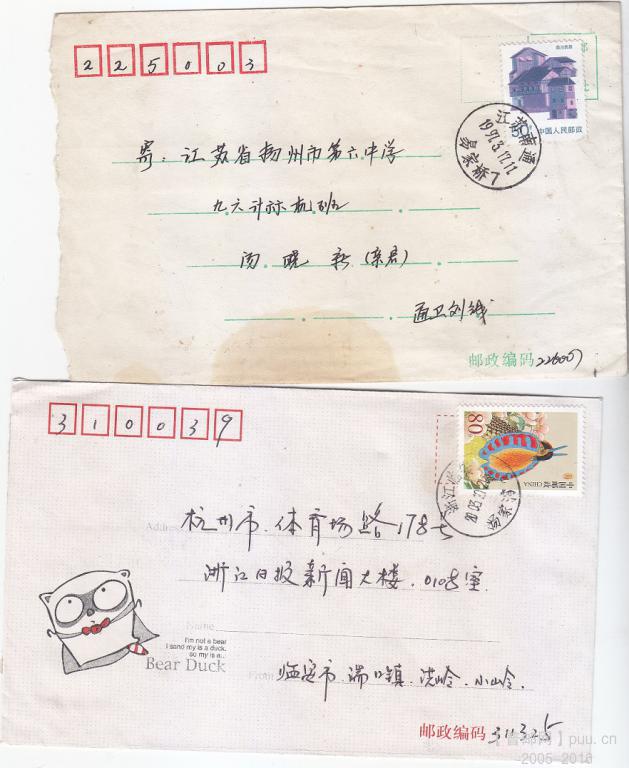 225003
50 中国人民邮政
江苏南通
1997.3.17.11
杨家桥 7
寄：江苏省扬州市第六中学
九六计标机班
通卫刘城
邮政编码
310039
80
中国邮政 CHINA
Address
杭州市.体育场路178号
浙江日报新闻大楼.0108室
Name
I'm not a bear
I sand my is a duck.
so my is a...
Bear Duck
From
临安市.湍口镇.洪岭.小山岭.
邮政编码 311325
puu.cn
2005-2016